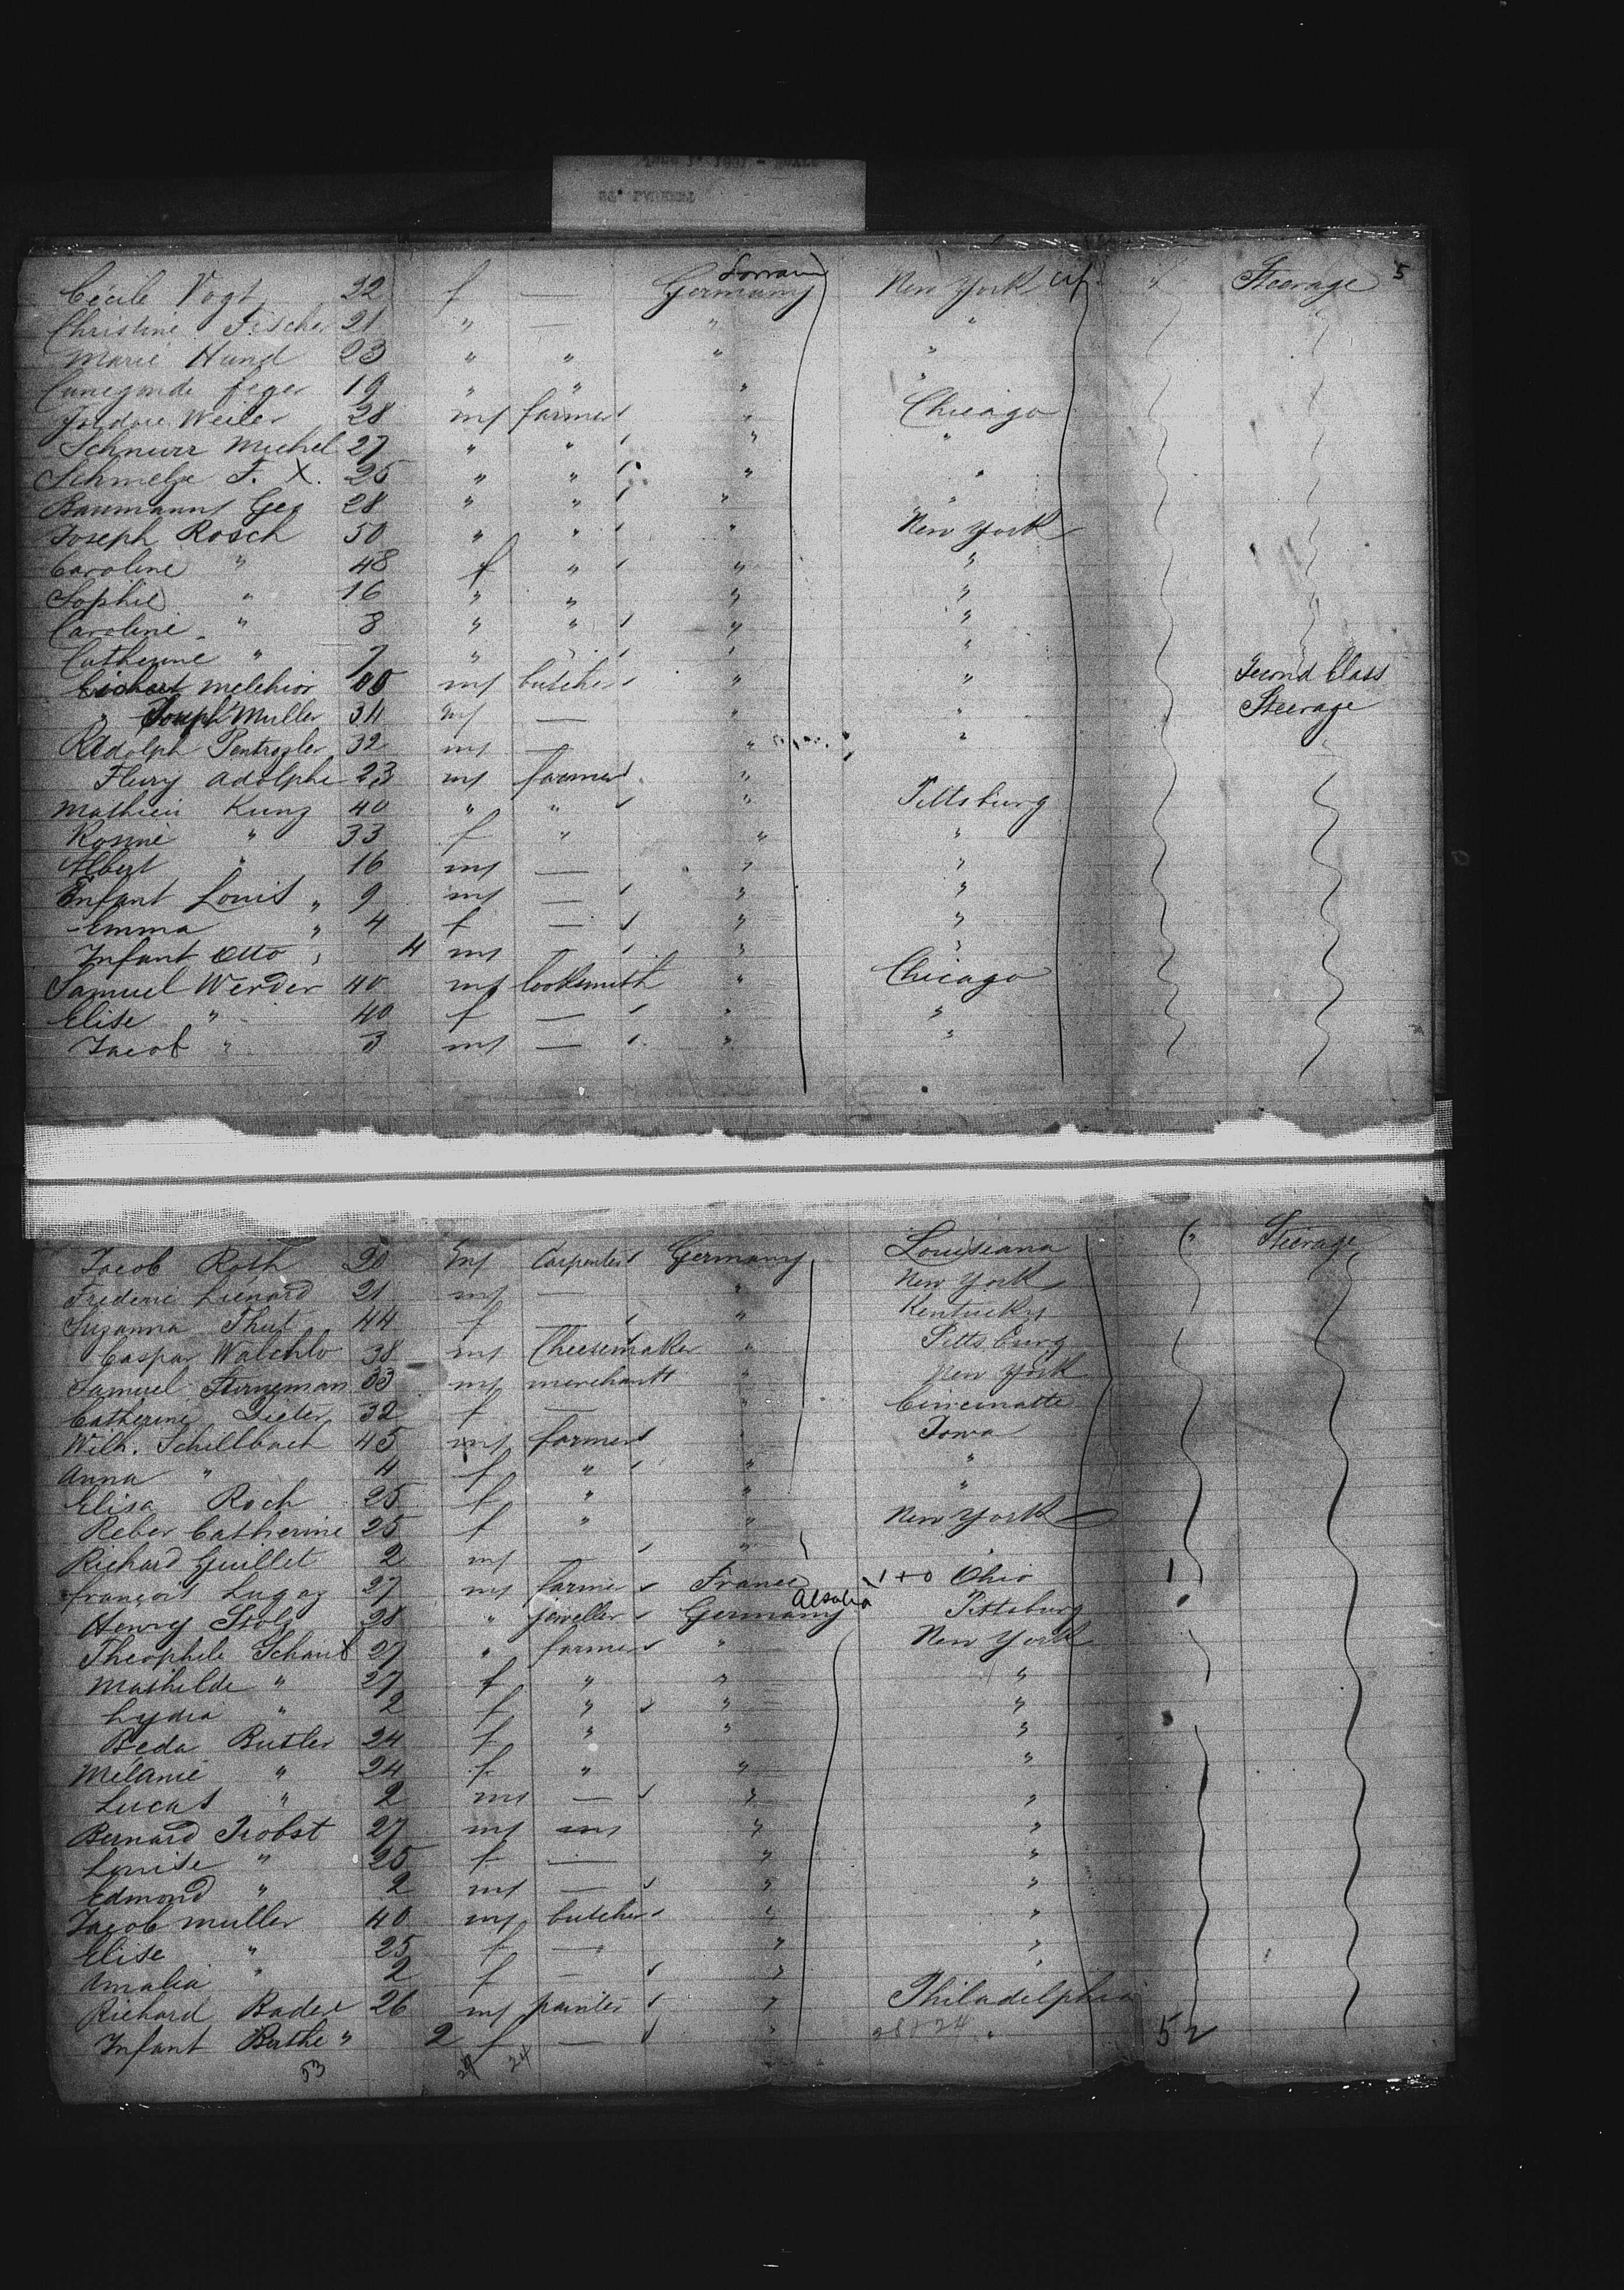 5
Lorrain
Cécile Vogt 22 f — Germany New York " Steerage
Christine Fischer 21 " — " "
Marie Hund 23 " " " "
Cunegonde feger 19 " " " "
Isidore Weiler 28 m farmer " Chicago
Schnurr Michel 27 " " " "
Schmelze F. X. 25 " " " "
Baumann Geo 28 " " " "
Joseph Rosch 50 " " " New York
Caroline " 48 f " " "
Sophie " 16 " " " "
Caroline " 8 " " " "
Catherine " 7 " " " "
Melchior m butcher " " Second Class
" Joseph Muller 34 m — " " Steerage
Adolph 32 m — " "
Fleury Adolphe 23 m farmer " 
Mathieu Kunz 40 " " " Pittsburg
Rosine " 33 f " " "
Albert " 16 m — " "
Enfant Louis " 9 m — " "
Emma " 4 f — " "
Infant Otto " 4 m — " "
Samuel Werder 40 m locksmith " Chicago
Elise " 40 f — " "
Jacob " 3 m — " "
Jacob Roth 20 m Carpenter Germany Louisiana " Steerage
Frederic Lienard 21 m — " New York
Suzanna Thut 44 f — " Kentucky
Caspar Walchlo 38 m Cheesemaker " Pittsburg
Samuel Sturneman 33 m merchant " New York
Catherine Dieter 32 f — " Cincinatte
Wilh. Schillbach 45 m farmer " Iowa
Anna " 4 f " " "
Elisa Roch 25 f " " "
Reber Catherine 25 f " " New York
Richard Guillet 2 m — " "
françois Lugaz 27 m farmer France 1+0 Ohio 1
Alsatia
Henry Stolz 28 " jeweller Germany Pittsburg
Theophile Schaub 27 " farmer " New York
Mathilde " 27 f " " "
Lydia " 2 f " " "
Beda Butler 24 f " " "
Mélanie " 24 f " " "
Lucas " 2 m — " "
Bernard Probst 27 m m " "
Louise " 25 f — " "
Edmond " 2 m — " "
Jacob Muller 40 m butcher " "
Elise " 25 f — " "
Amalia " 2 f — " "
Richard Bader 26 m painter " Philadelphia
Infant Berthe " 2 f — " 28+24 " 52
53 29 24